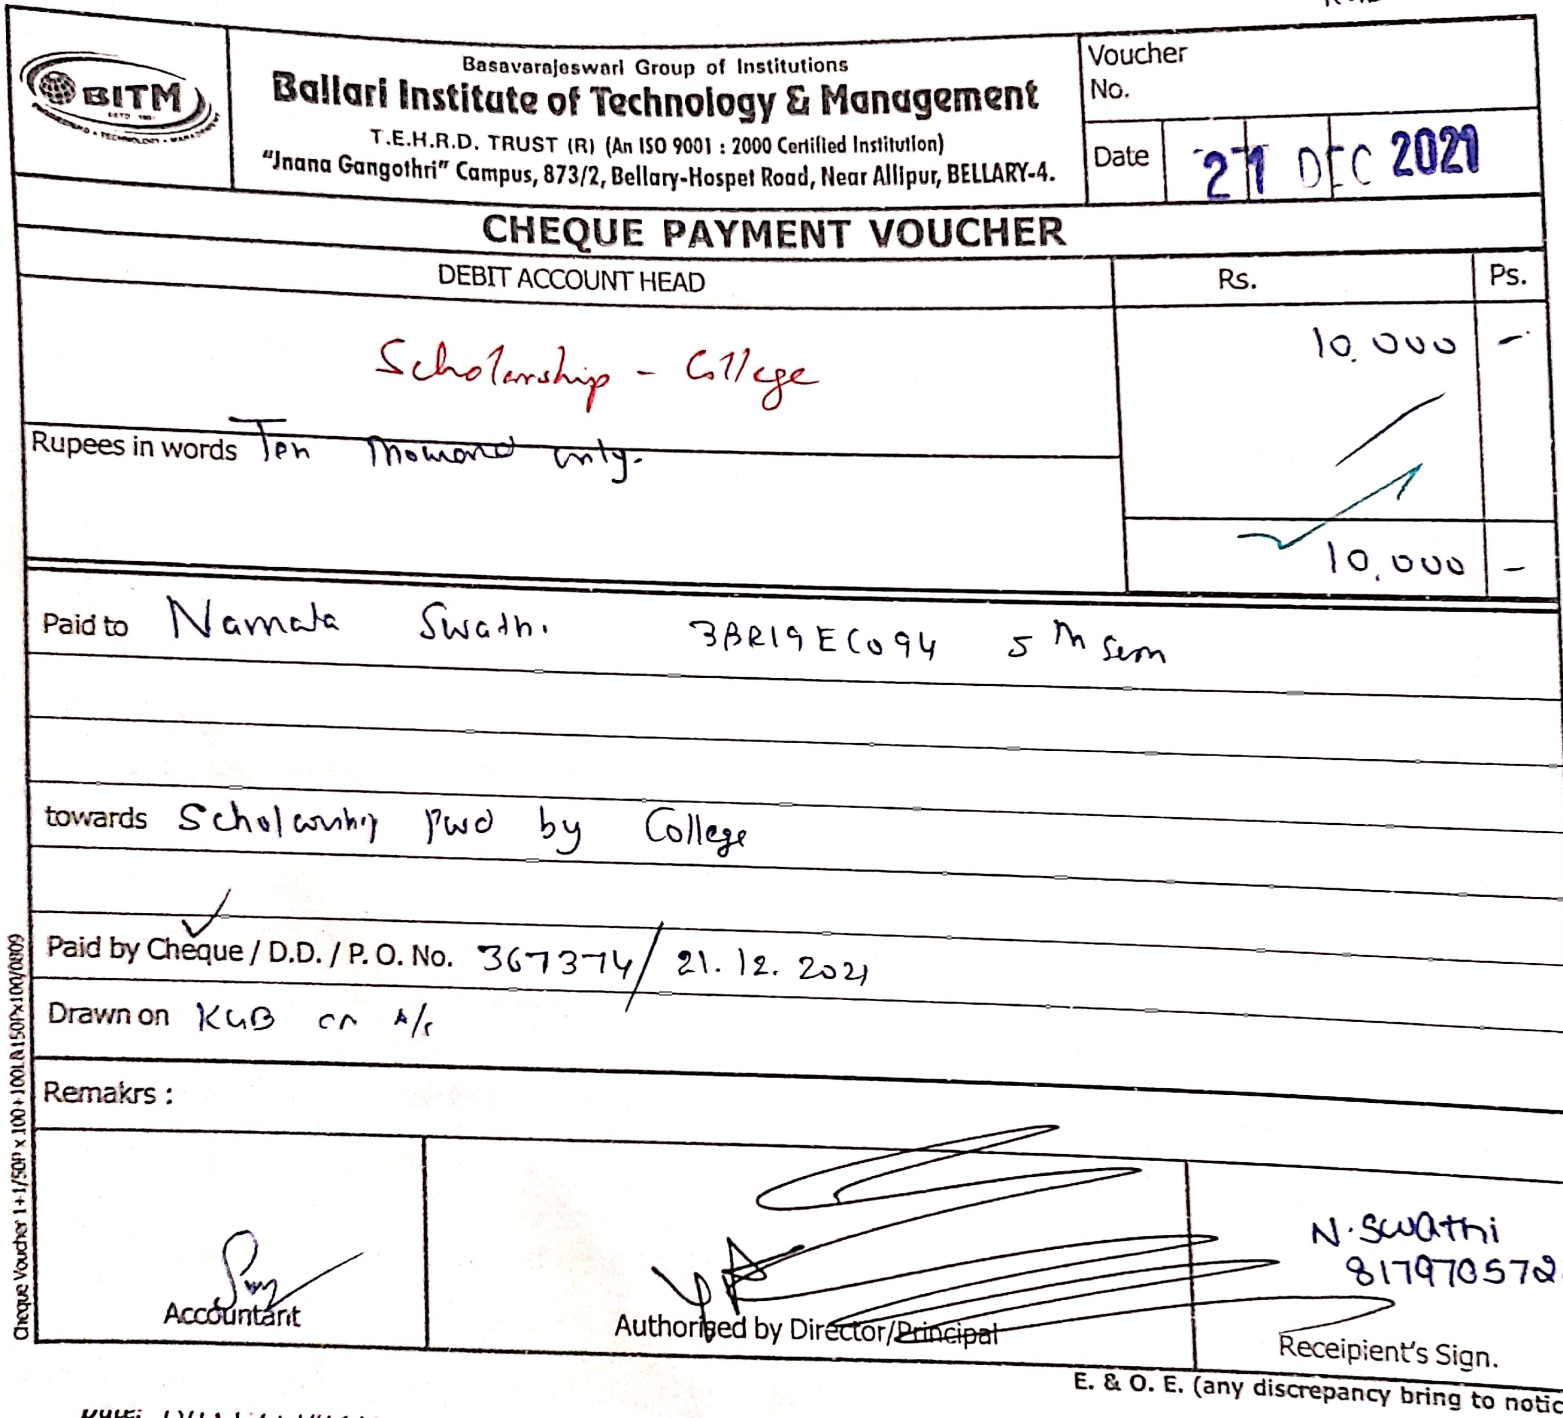 BITM
Basavarajeswari Group of Institutions
Ballari Institute of Technology & Management
T.E.H.R.D. TRUST (R) (An ISO 9001 : 2000 Certified Institution)
"Jnana Gangothri" Campus, 873/2, Bellary-Hospet Road, Near Allipur, BELLARY-4.
Voucher
No.
Date 21 DEC 2021
CHEQUE PAYMENT VOUCHER
DEBIT ACCOUNT HEAD Rs. Ps.
Scholarship - College 10,000 -
Rupees in words Ten Thousand only.
10,000 -
Paid to Namala Swathi 3BR19EC094 5th Sem
towards Scholarship paid by College
Paid by Cheque / D.D. / P. O. No. 367374/ 21.12.2021
Drawn on KGB on A/c
Remakrs :
N. Swathi
817970572
Accountant
Authorised by Director/Principal
Receipient's Sign.
E. & O. E. (any discrepancy bring to notic
Cheque Voucher 1+1/50P x 100+100LB150Px100/0809